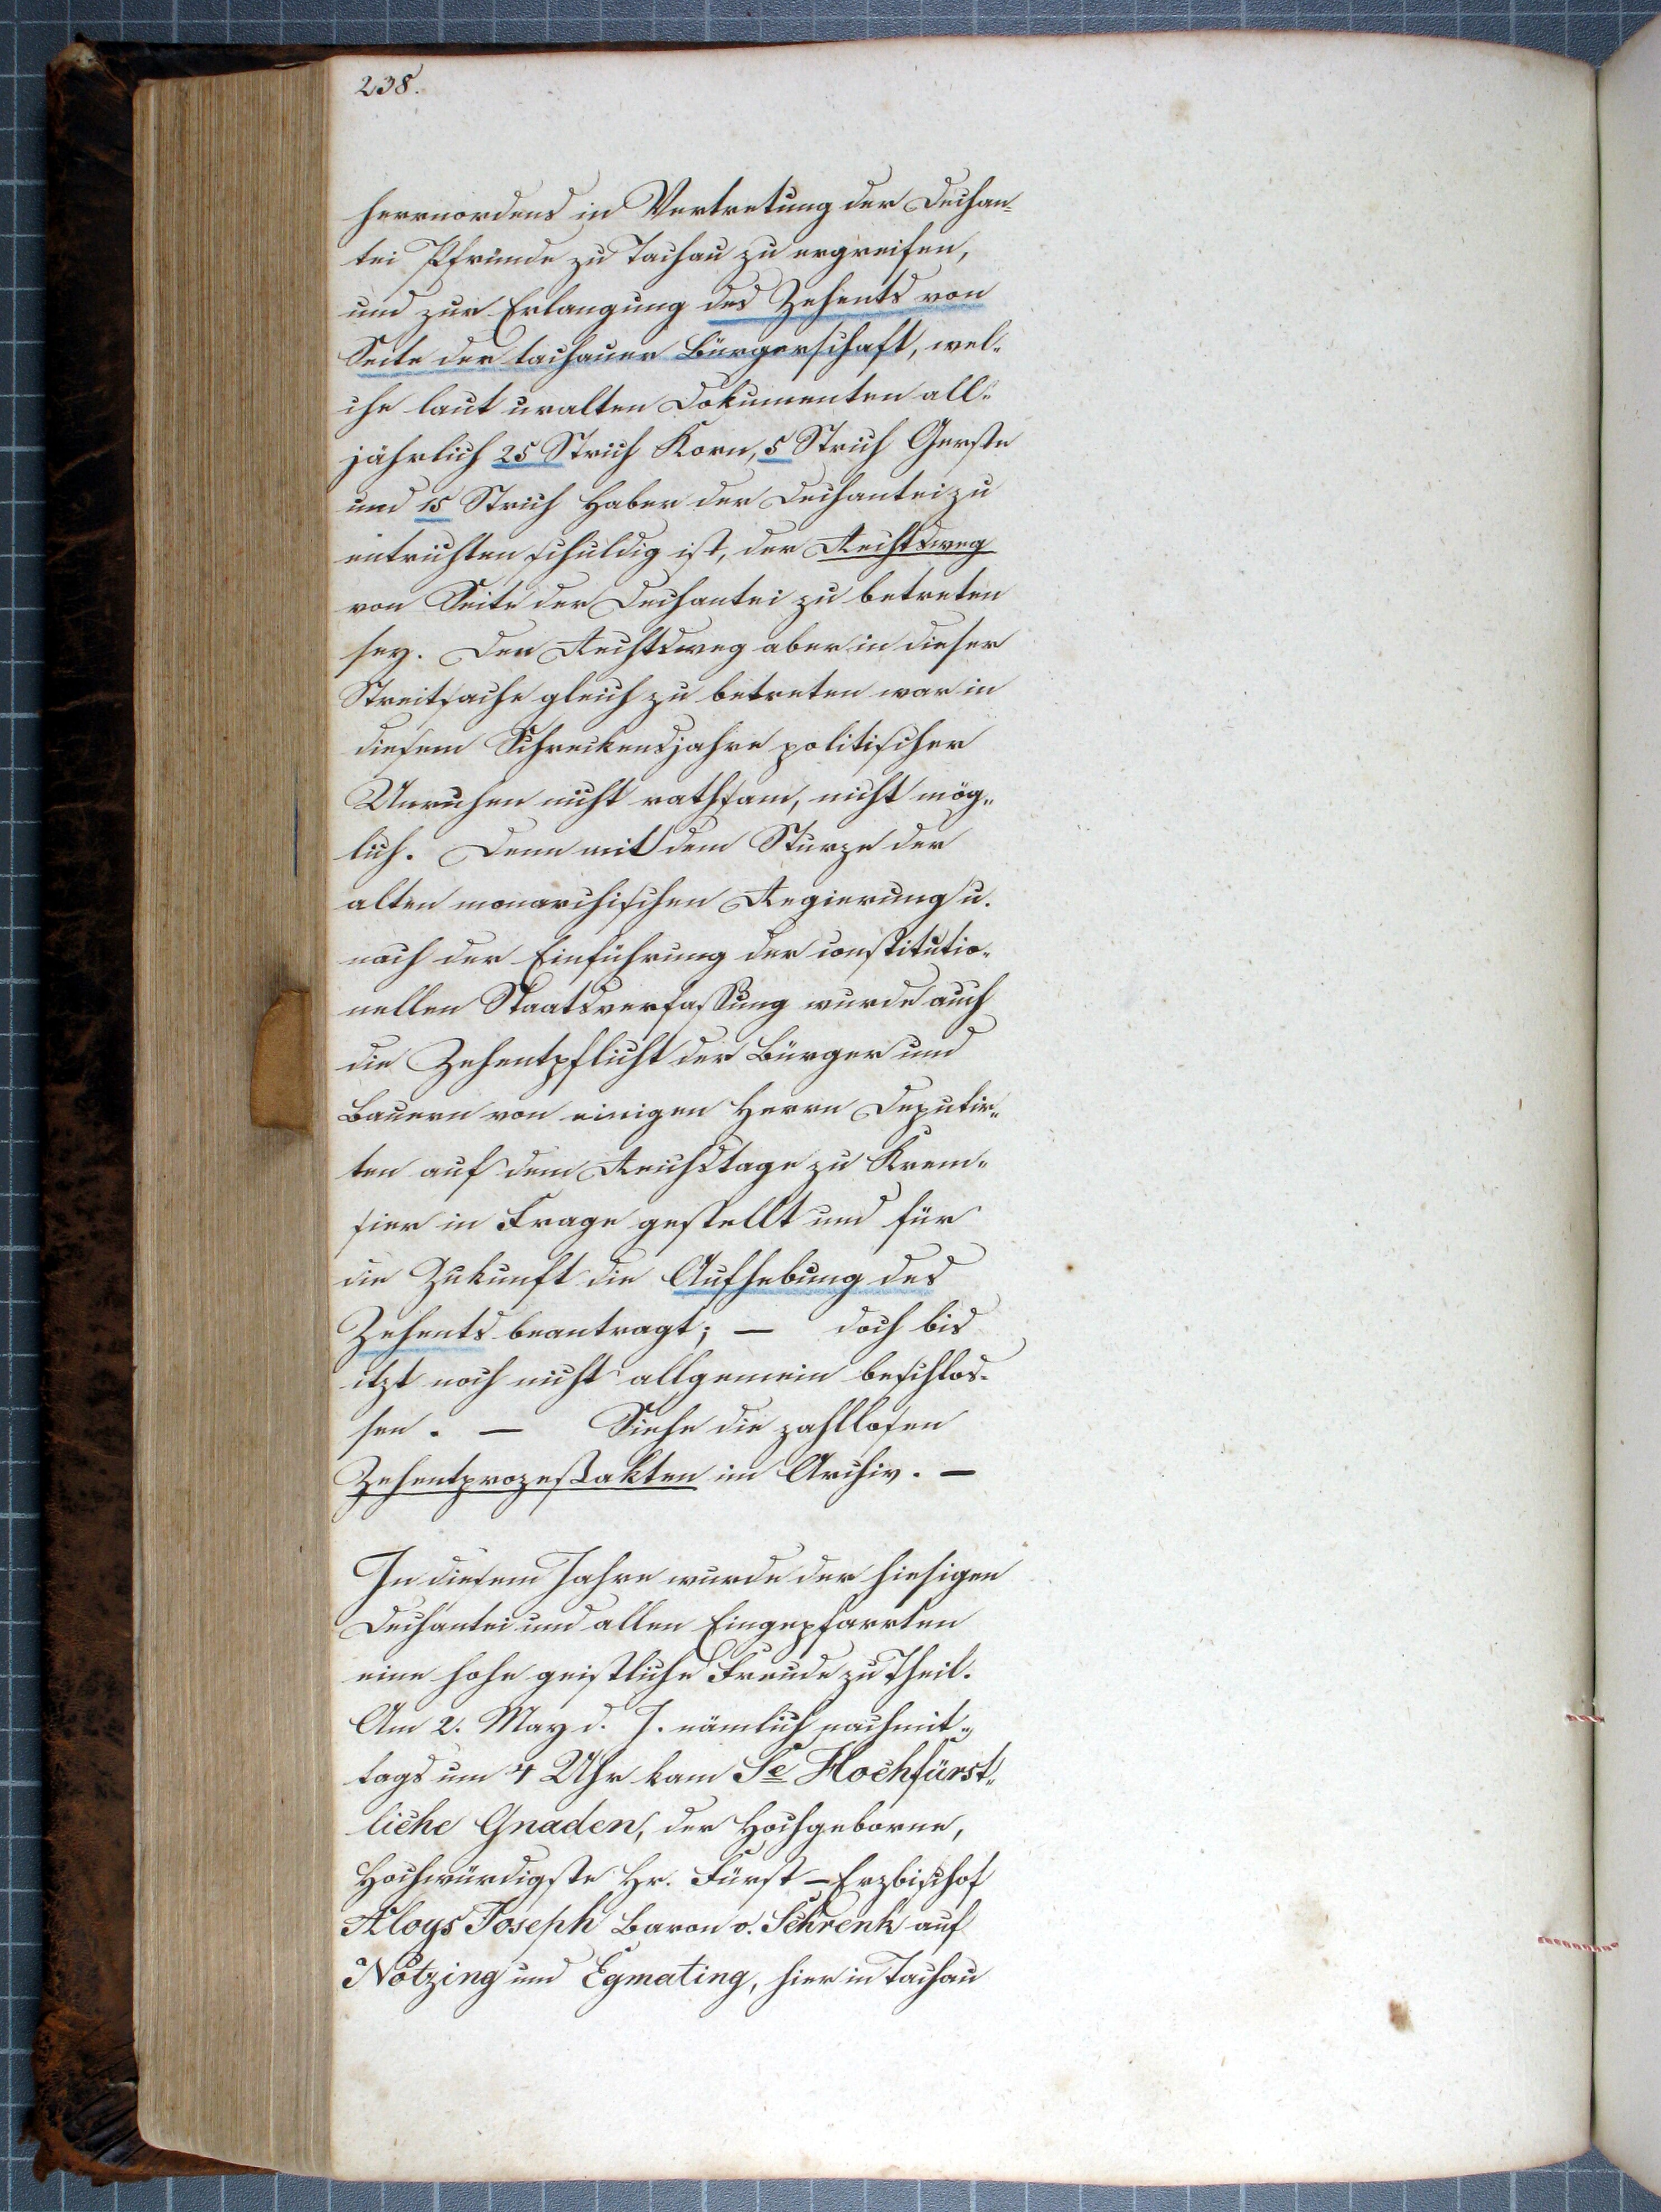 238.
herrnordens in Vertretung der Dechan-
tei Pfründe zu Tachau zu ergreifen,
und zur Erlangung des Zehents von
Seite der tachauer Bürgerschaft, wel-
che laut uralten Dokumenten all-
jährlich 25 Strich Korn, 5 Strich Gerste
und 15 Strich Haber der Dechantei zu
entrichten schuldig ist, der Rechtsweg
von Seite der Dechantei zu betreten
sey. Den Rechtsweg aber in dieser
Streitsache gleich zu betreten war in
diesem Schreckensjahre politischer
Unruhen nicht rathsam, nicht mög-
lich. Denn mit dem Sturze der
alten monarchischen Regierung u.
nach der Einführung der constitutio-
nellen Staatsverfassung wurde auch
die Zehentpflicht der Bürger und
Bauern von einigen Herrn Deputir-
ten auf dem Reichstage zu Krem-
sier in Frage gestellt und für
die Zukunft die Aufhebung des
Zehents beantragt; — doch bis
itzt noch nicht allgemein beschlos-
sen. — Siehe die zahllosen
Zehentprozeßakten im Archiv. —
In diesem Jahre wurde der hiesigen
Dechantei und allen Eingepfarrten
eine hohe geistliche Freude zu Theil.
Am 2. May d. J. nämlich nachmit-
tags um 4 Uhr kam Se Hochfürst-
liche Gnaden, der Hochgeborne,
Hochwürdigste Hr. Fürst-Erzbischof
Aloys Joseph Baron v. Schrenk auf
Notzing und Egmating, hier in Tachau